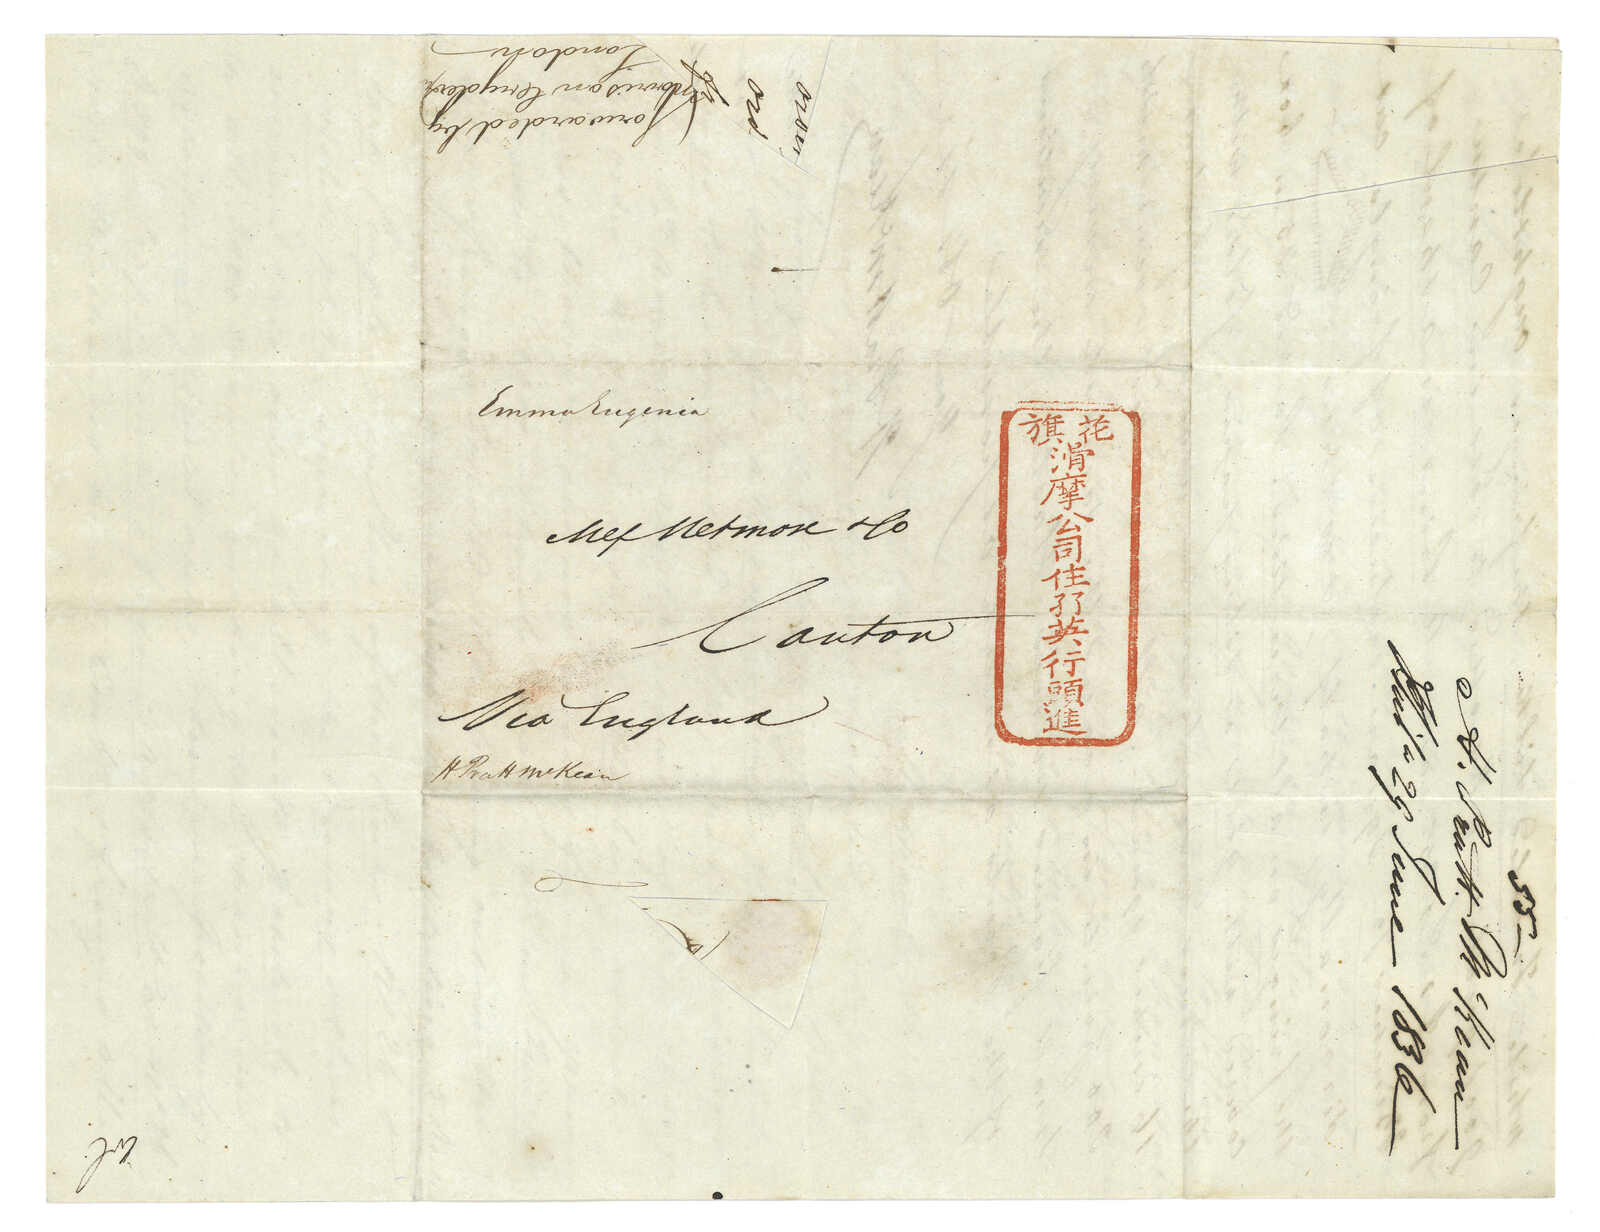 Forwarded by
Morrison Cryder
London
Emma Eugenia
Mess Wetmore & Co
Canton
Via England
H Pratt McKean
花旗
滑摩公司住孖英行頭進
55
H. Pratt McKean
Phil'a 29 June 1836